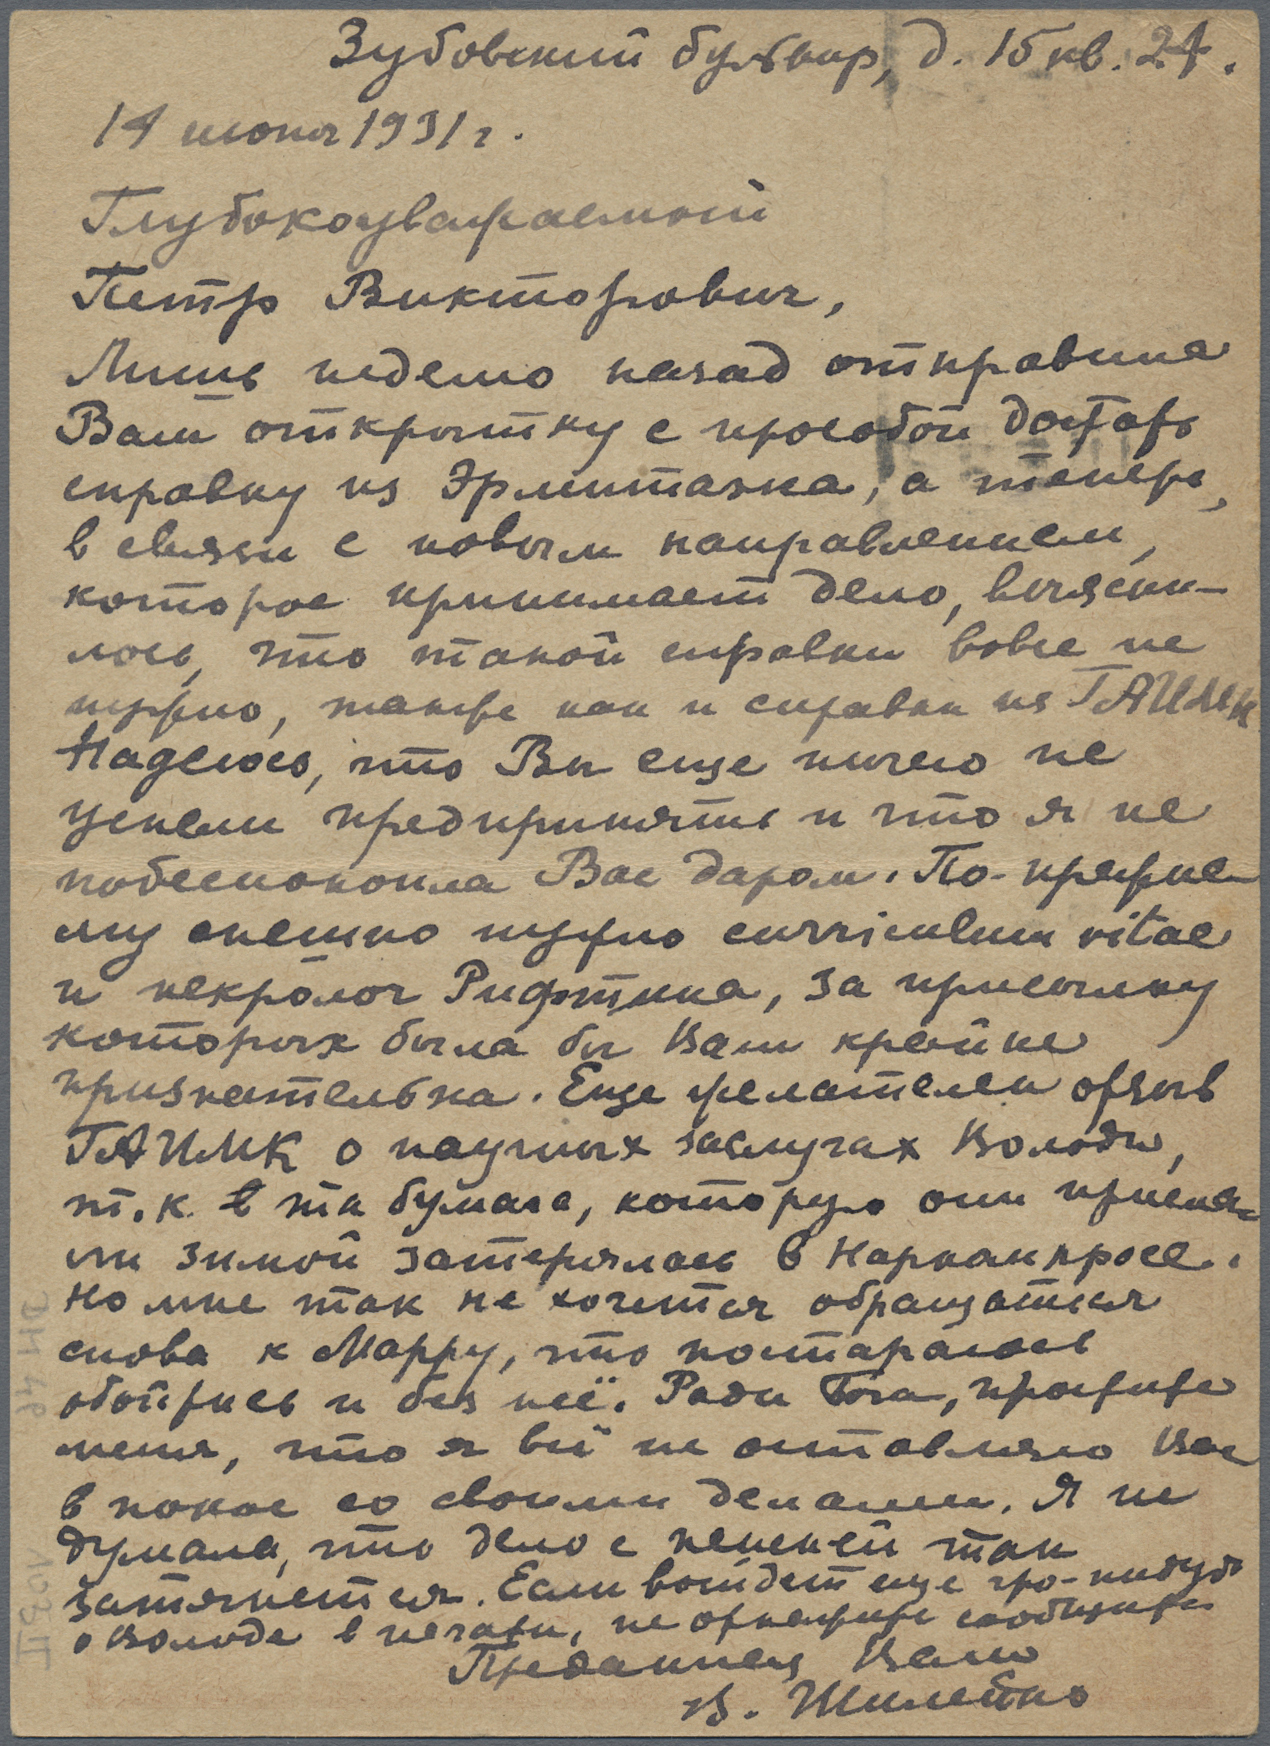 Зубовский бульвар, д. 15 кв. 24.
14 июня 1931 г.
Глубокоуважаемый
Петр Викторович,
Лишь неделю назад отправила
Вам открытку с просьбой достать
справку из Эрмитажа, а теперь,
в связи с новым направлением,
которое принимает дело, выясни-
лось, что такой справки вовсе не
нужно, также как и справки из ГАИМК
Надеюсь, что Вы еще ничего не
успели предпринять и что я не
побеспокоила Вас даром. По-прежне-
му спешно нужно curriculum vitae
и некролог Рифтина, за присылку
которых была бы Вам крайне
признательна. Еще желателен отзыв
ГАИМК о научных заслугах Володи,
т. к. та бумага, которую они присла-
ли зимой затерялась в Наркомпросе.
Но мне так не хочется обращаться
снова к Марру, что постараюсь
обойтись и без неё. Ради Бога, простите
меня, что я всё не оставляю Вас
в покое со своими делами. Я не
думала, что дело с пенсией так
затянется. Если выйдет еще что-нибудь
о Володе в печати, не откажите сообщить.
Преданная Вам
В. Шилейко